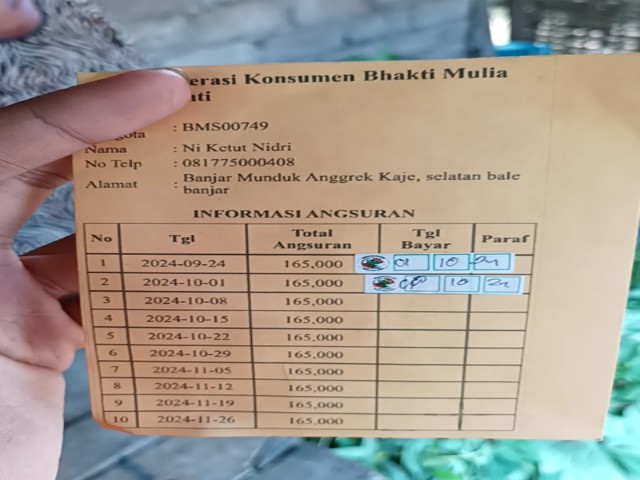 erasi Konsumen Bhakti Mulia
ati
ota : BMS00749
Nama : Ni Ketut Nidri
No Telp : 081775000408
Alamat : Banjar Munduk Anggrek Kaje, selatan bale
banjar
INFORMASI ANGSURAN
No Tgl Total Angsuran Tgl Bayar Paraf
1 2024-09-24 165,000 01 10 24
2 2024-10-01 165,000 10 24
3 2024-10-08 165,000
4 2024-10-15 165,000
5 2024-10-22 165,000
6 2024-10-29 165,000
7 2024-11-05 165,000
8 2024-11-12 165,000
9 2024-11-19 165,000
10 2024-11-26 165,000